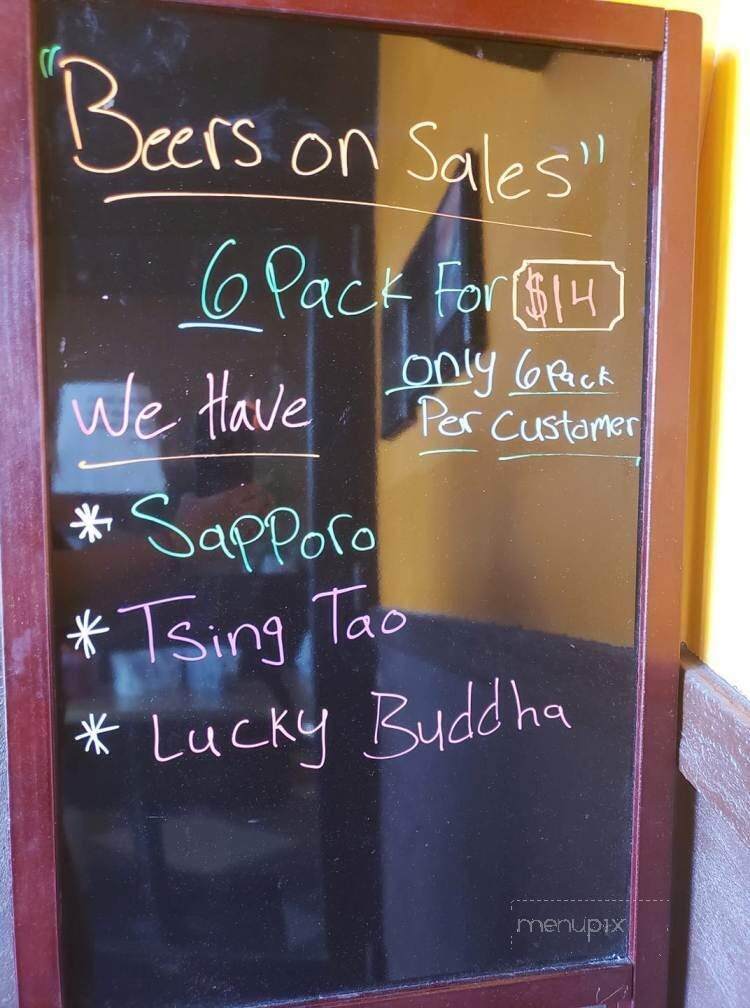 "Beers on Sales"
6 Pack For $14
only 6 Pack
Per Customer
We Have
* Sapporo
* Tsing Tao
* Lucky Buddha
menupix